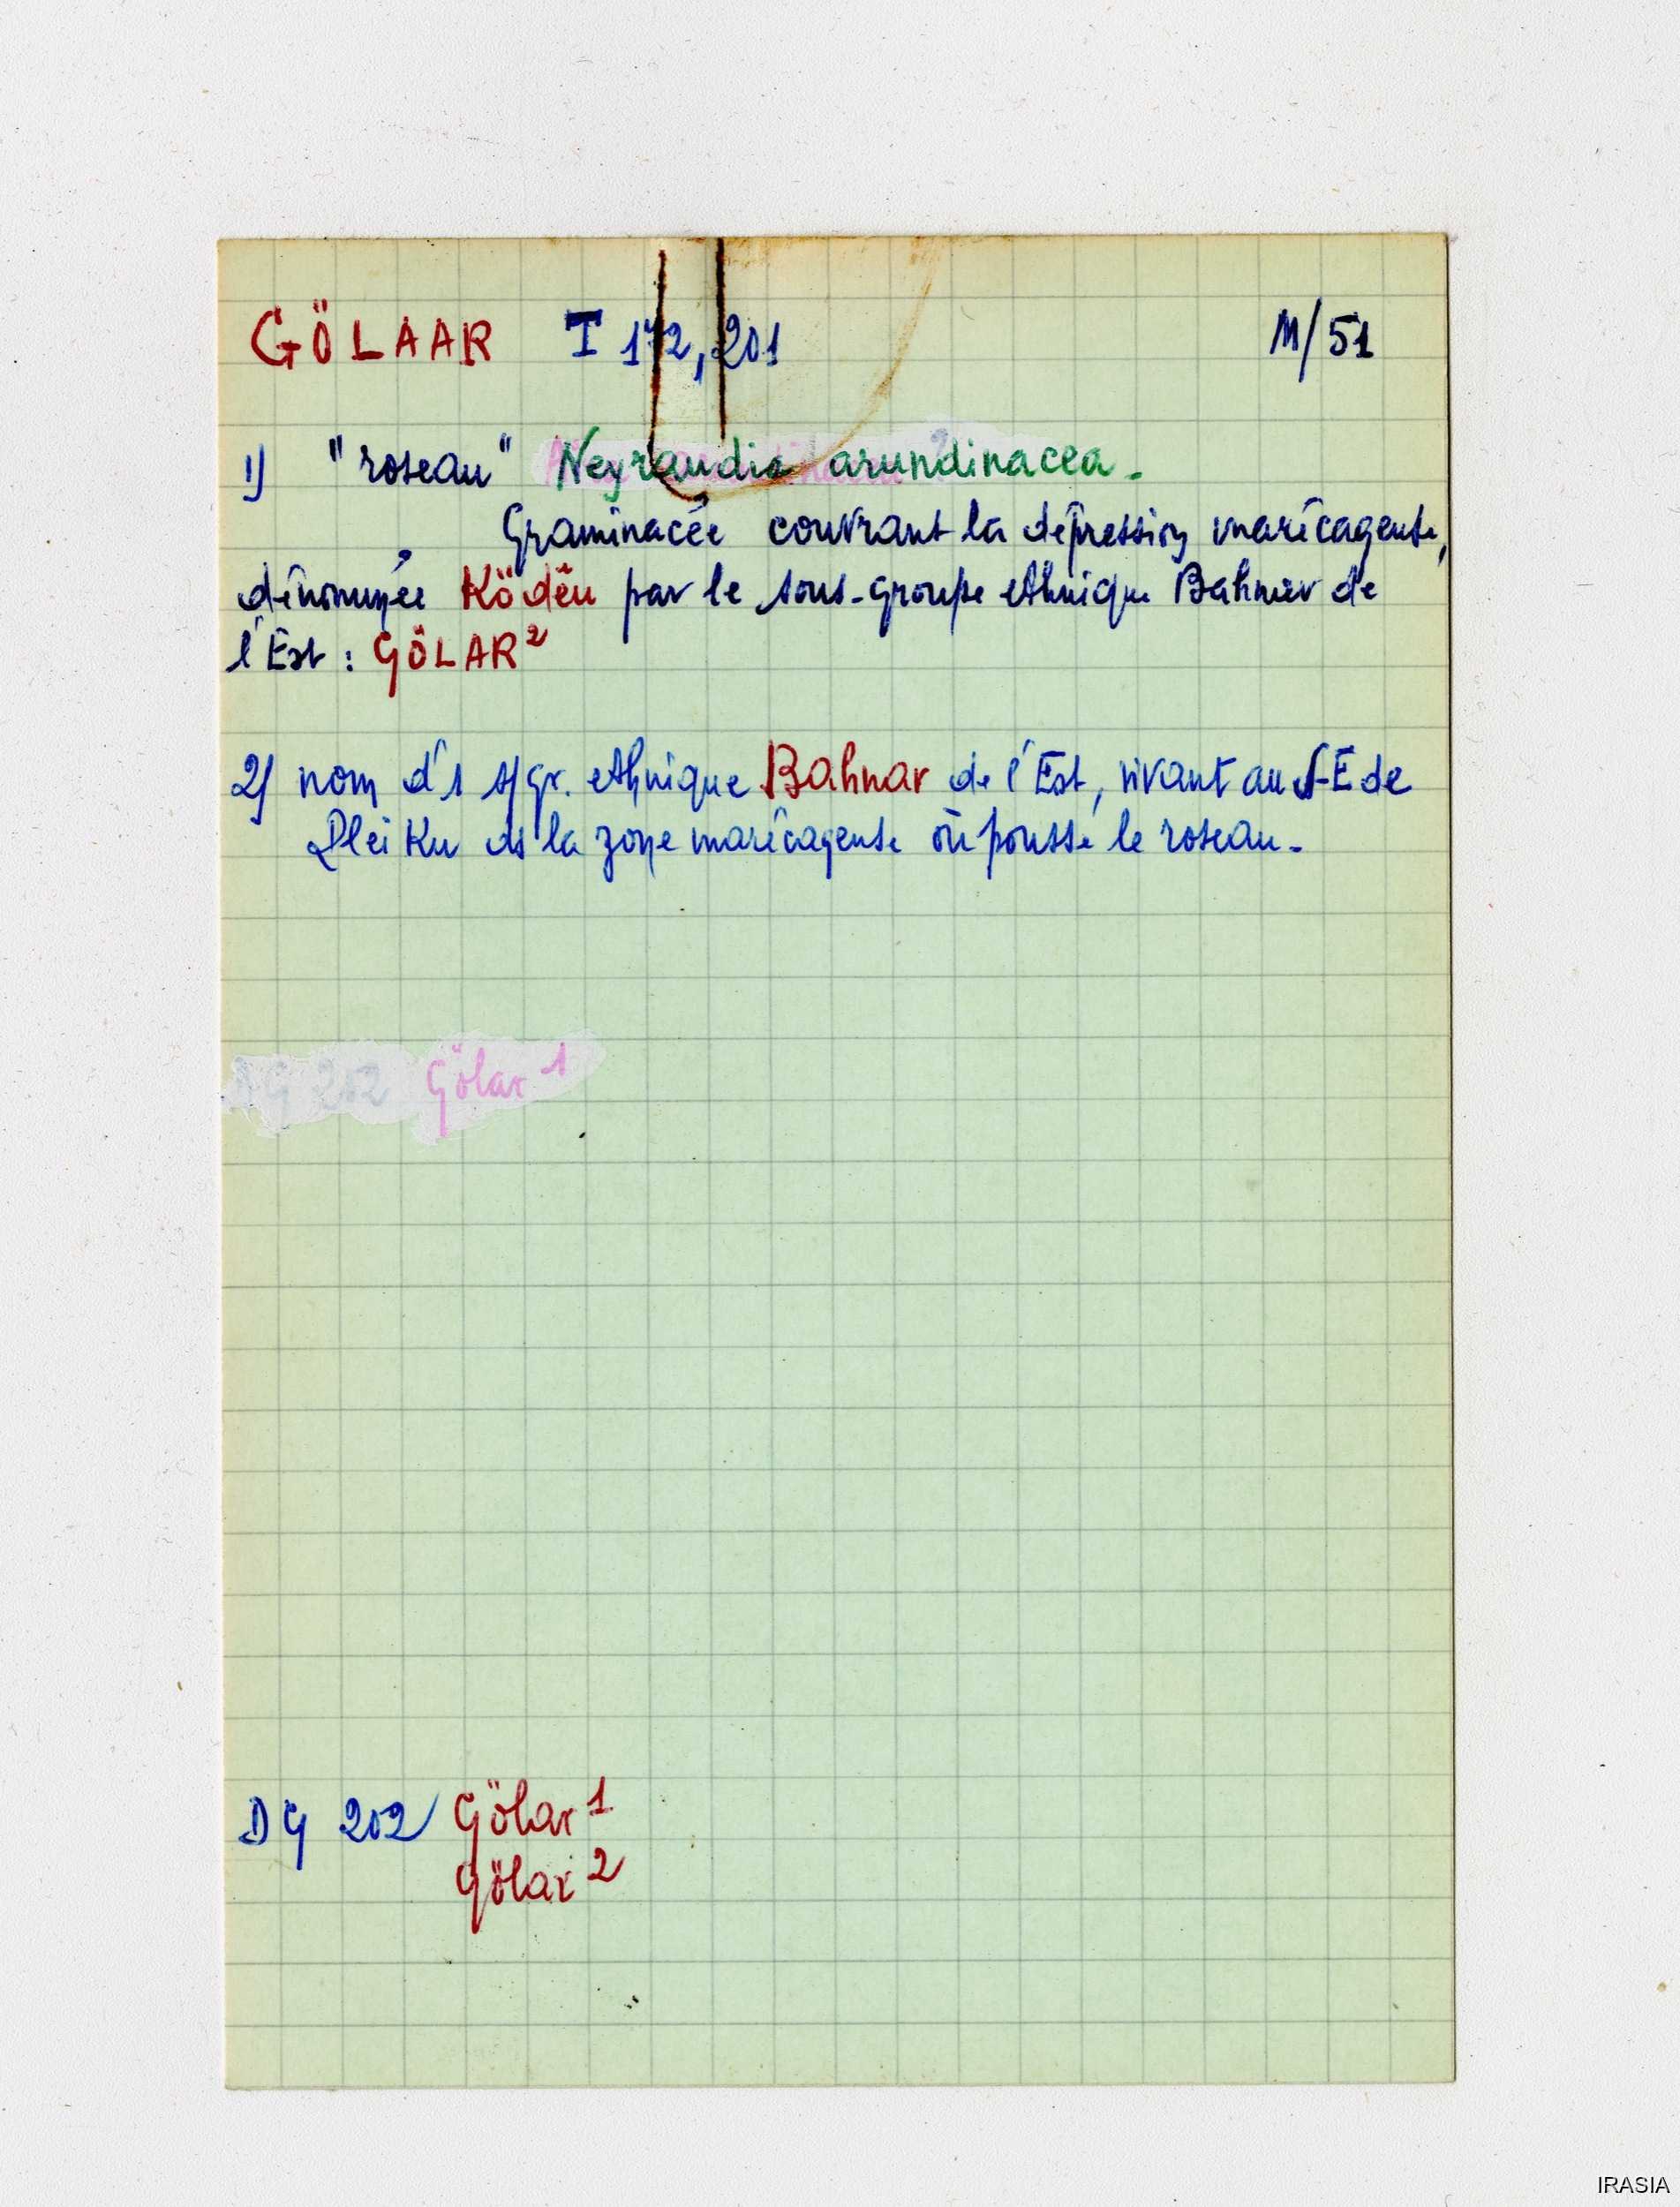 GÖLAAR I 172, 201 M/51
1) "roseau" Neyraudia arundinacea.
Graminacée couvrant la dépression marécageuse,
dénommée Ködêu par le sous-groupe ethnique Bahnar de
l'Est : GÖLAR²
2) nom d'1 s/gr. ethnique Bahnar de l'Est, vivant au S-E de
Plei Ku ds la zone marécageuse où pousse le roseau.
DG 202 Gölar 1
DG 202 Gölar 1
Gölar 2
IRASIA